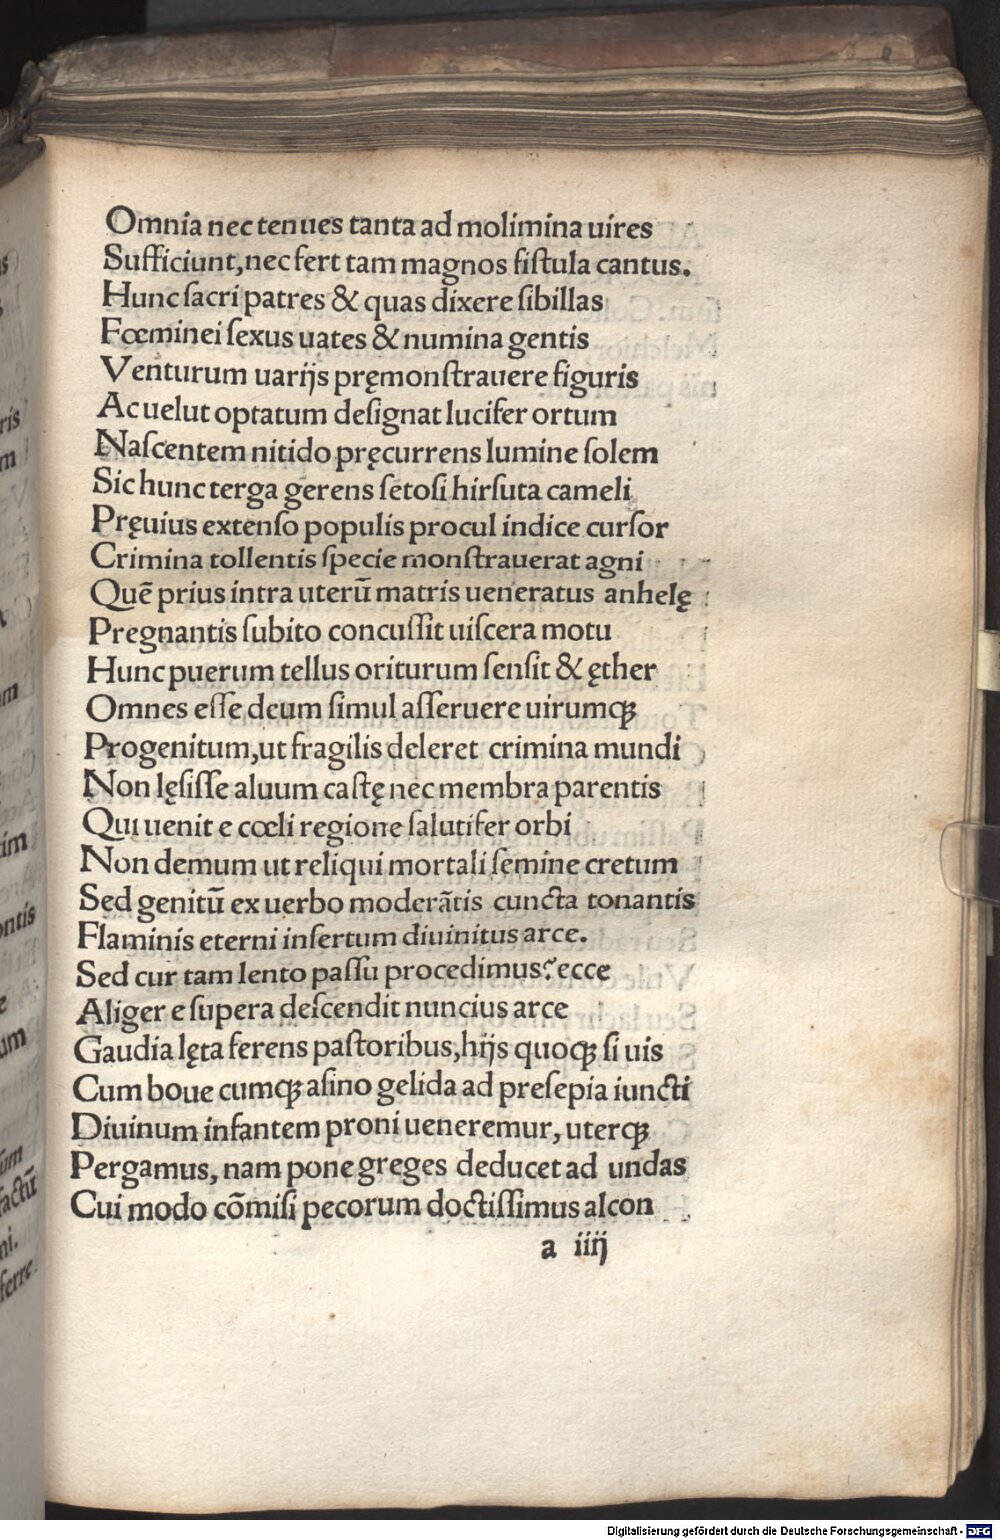 Omnia nec tenues tanta ad molimina uires
Sufficiunt,nec fert tam magnos fiſtula cantus.
Hunc ſacri patres & quas dixere ſibillas
Fœminei ſexus uates & numina gentis
Venturum uarijs pręmonſtrauere figuris
Ac uelut optatum deſignat lucifer ortum
Naſcentem nitido pręcurrens lumine ſolem
Sic hunc terga gerens ſetoſi hirſuta cameli
Pręuius extenſo populis procul indice curſor
Crimina tollentis ſpecie monſtrauerat agni
Quē prius intra uterū matris ueneratus anhelę
Pregnantis ſubito concuſſit uiſcera motu
Hunc puerum tellus oriturum ſenſit & ęther
Omnes eſſe deum ſimul aſſeruere uirumqꝫ
Progenitum,ut fragilis deleret crimina mundi
Non lęſiſſe aluum caſtę nec membra parentis
Qui uenit e cœli regione ſalutifer orbi
Non demum ut reliqui mortali ſemine cretum
Sed genitū ex uerbo moderātis cuncta tonantis
Flaminis eterni inſertum diuinitus arce.
Sed cur tam lento paſſu procedimus? ecce
Aliger e ſupera deſcendit nuncius arce
Gaudia lęta ferens paſtoribus,hijs quoqꝫ ſi uis
Cum boue cumqꝫ aſino gelida ad preſepia iuncti
Diuinum infantem proni ueneremur, uterqꝫ
Pergamus, nam pone greges deducet ad undas
Cui modo cōmiſi pecorum doctiſſimus alcon
a iiij
Digitalisierung gefördert durch die Deutsche Forschungsgemeinschaft - DFG